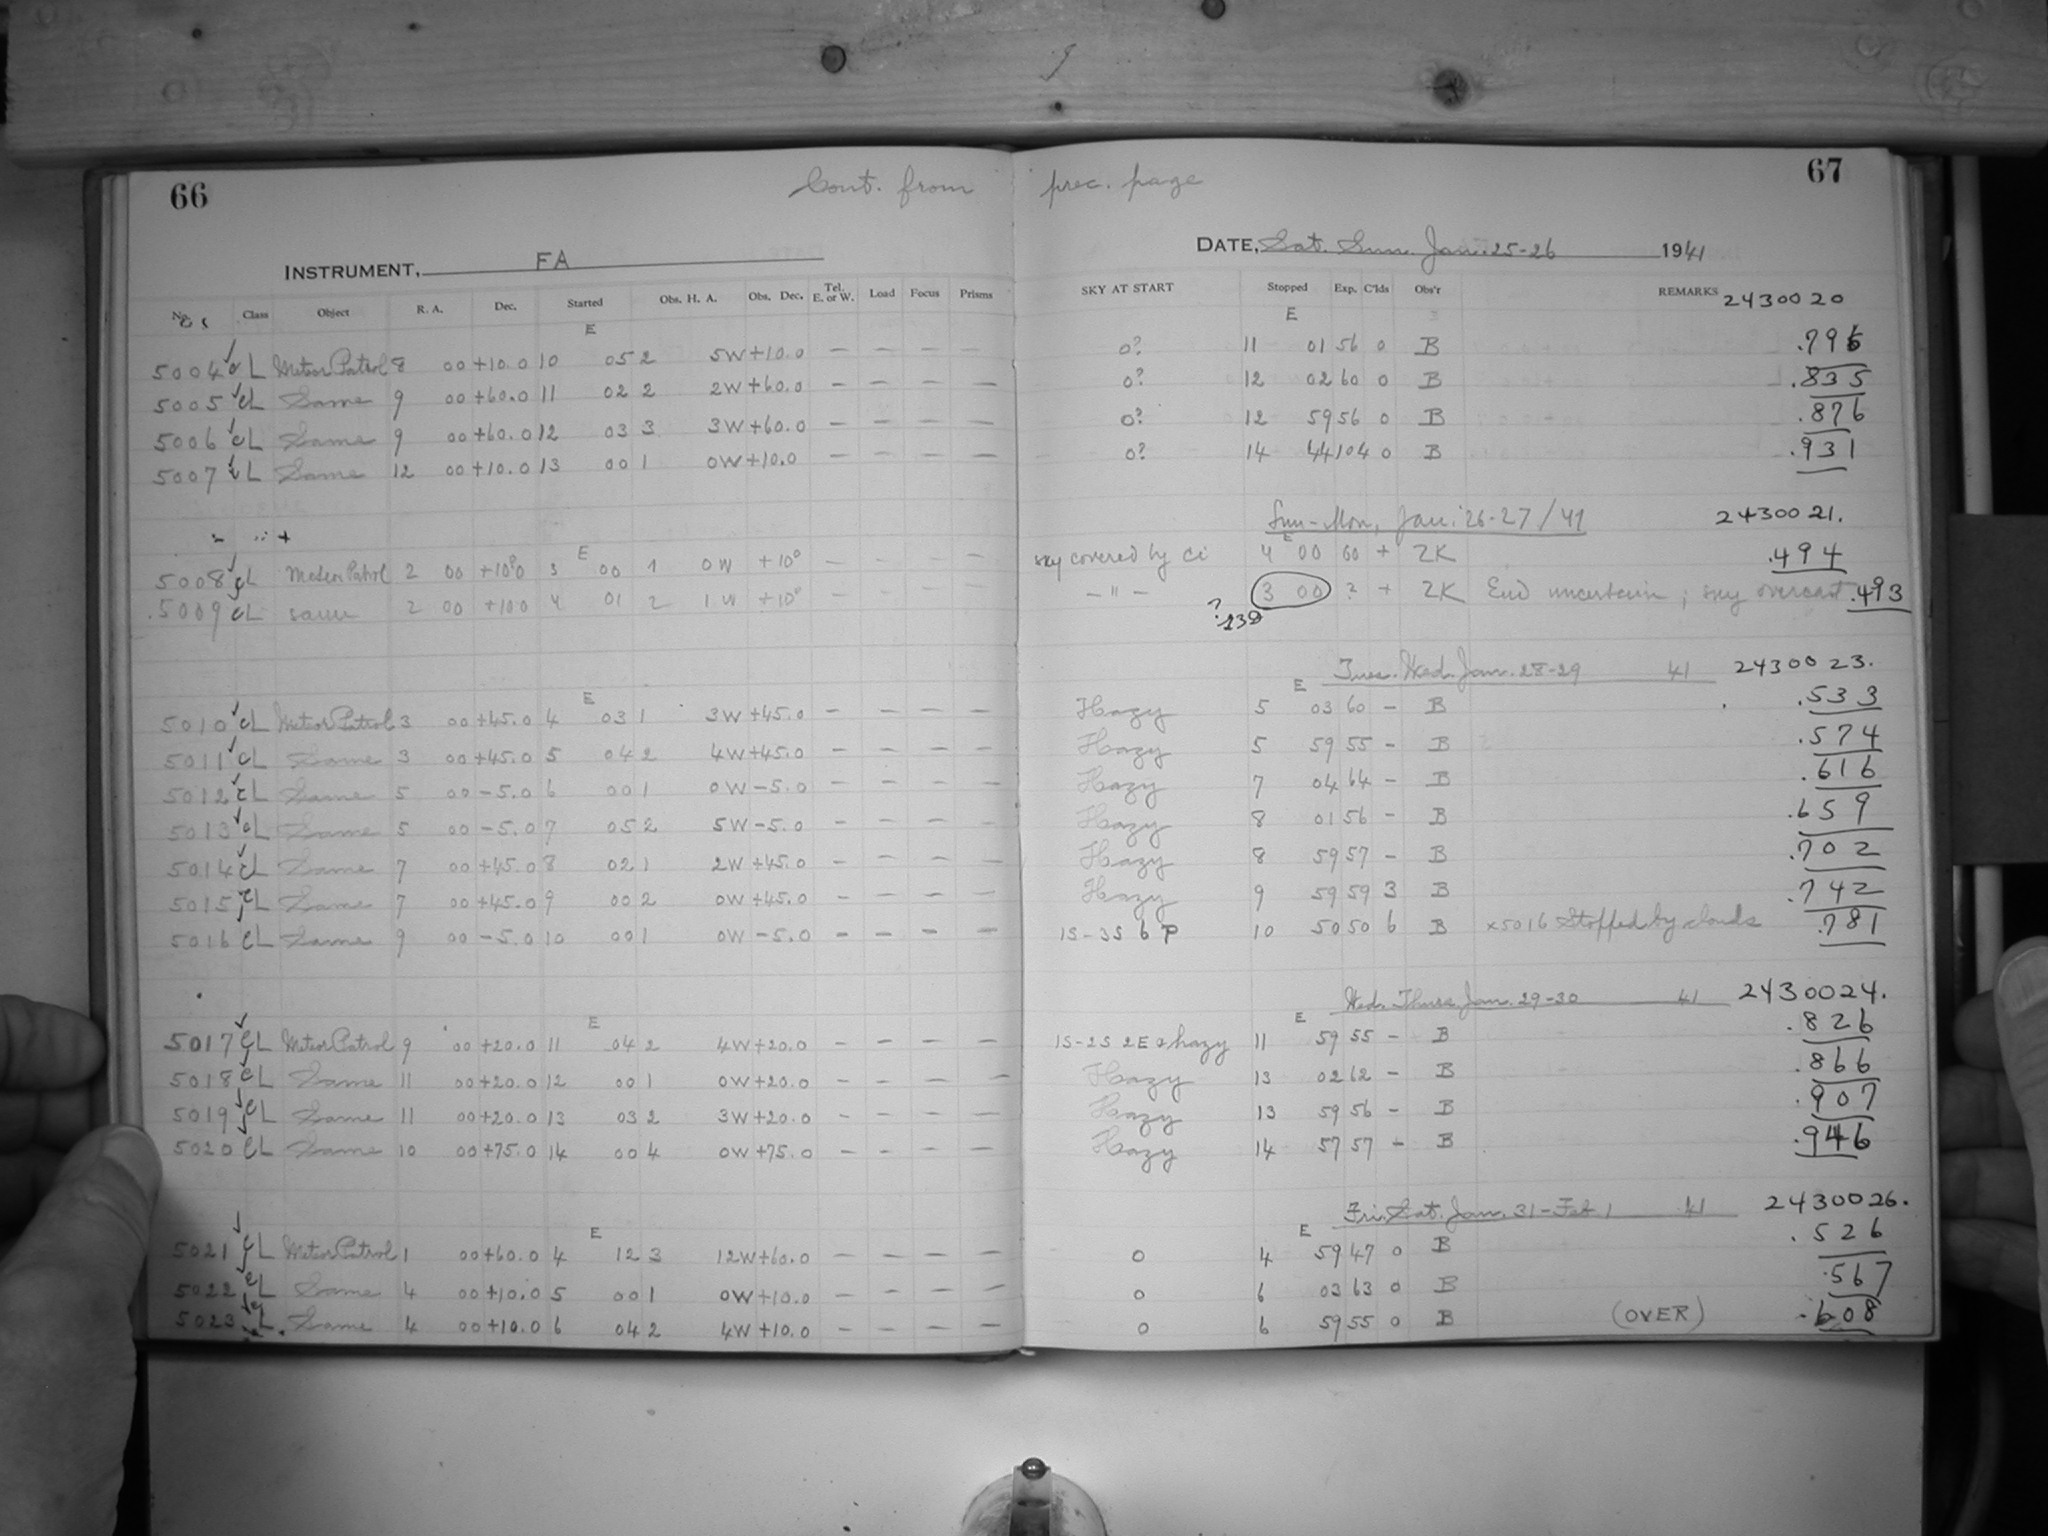 66 Cont. from prec. page 67
INSTRUMENT, FA DATE, Sat. Sun. Jan. 25-26 1941
No. Class Object R. A. Dec. Started Obs. H. A. Obs. Dec. Tel. E. or W. Load Focus Prisms SKY AT START Stopped Exp. C'lds Obs'r REMARKS 2430020
E E
5004 cL Meteor Patrol 8 00 +10.0 10 05 2 5W +10.0 — — — — 0? 11 01 56 0 B .795
5005 cL Same 9 00 +60.0 11 02 2 2W +60.0 — — — — 0? 12 02 60 0 B .835
5006 cL Same 9 00 +60.0 12 03 3 3W +60.0 — — — — 0? 12 59 56 0 B .876
5007 cL Same 12 00 +10.0 13 00 1 0W +10.0 — — — — 0? 14 44 104 0 B .931
Sun-Mon, Jan. 26-27/41 2430021.
E E
5008 cL Meteor Patrol 2 00 +10° 3 00 1 0W +10° — — — — sky covered by Ci 4 00 60 + ZK .494
5009 cL same 2 00 +10.0 4 01 2 1W +10° — — — — — " — 3 00 ? + ZK End uncertain; sky overcast .493
?
Tues. Wed. Jan. 28-29 41 2430023.
E E
5010 cL Meteor Patrol 3 00 +45.0 4 03 1 3W +45.0 — — — — Hazy 5 03 60 - B .533
5011 cL Same 3 00 +45.0 5 04 2 4W +45.0 — — — — Hazy 5 59 55 - B .574
5012 cL Same 5 00 -5.0 6 00 1 0W -5.0 — — — — Hazy 7 04 64 - B .616
5013 cL Same 5 00 -5.0 7 05 2 5W -5.0 — — — — Hazy 8 01 56 - B .659
5014 cL Same 7 00 +45.0 8 02 1 2W +45.0 — — — — Hazy 8 59 57 - B .702
5015 cL Same 7 00 +45.0 9 00 2 0W +45.0 — — — — Hazy 9 59 59 3 B .742
5016 cL Same 9 00 -5.0 10 00 1 0W -5.0 — — — — 1S-3S 6 P 10 50 50 6 B x5016 Stopped by clouds .781
Wed. Thurs. Jan. 29-30 41 2430024.
E E
5017 cL Meteor Patrol 9 00 +20.0 11 04 2 4W +20.0 — — — — 1S-2S 2E & hazy 11 59 55 - B .826
5018 cL Same 11 00 +20.0 12 00 1 0W +20.0 — — — — Hazy 13 02 62 - B .866
5019 cL Same 11 00 +20.0 13 03 2 3W +20.0 — — — — Hazy 13 59 56 - B .907
5020 cL Same 10 00 +75.0 14 00 4 0W +75.0 — — — — Hazy 14 57 57 - B .946
Fri. Sat. Jan. 31-Feb 1 41 2430026.
E E
5021 cL Meteor Patrol 1 00 +60.0 4 12 3 12W +60.0 — — — — 0 4 59 47 0 B .526
5022 cL Same 4 00 +10.0 5 00 1 0W +10.0 — — — — 0 6 03 63 0 B .567
5023 cL Same 4 00 +10.0 6 04 2 4W +10.0 — — — — 0 6 59 55 0 B (OVER) .608